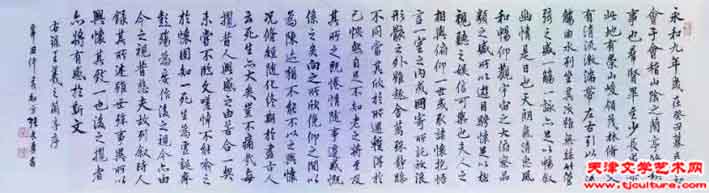 永和九年歲在癸丑暮春之初
會于會稽山陰之蘭亭脩禊
事也羣賢畢至少長咸集
此地有崇山峻領茂林脩竹又
有清流激湍暎帶左右引以為流
觴曲水列坐其次雖無絲竹管
弦之盛一觴一詠亦足以暢敘
幽情是日也天朗氣清惠風
和暢仰觀宇宙之大俯察品
類之盛所以遊目騁懷足以極
視聽之娛信可樂也夫人之
相與俯仰一世或取諸懷抱悟
言一室之內或因寄所託放浪
形骸之外雖趣舍萬殊靜躁
不同當其欣於所遇暫得於
己怏然自足不知老之將至及
其所之既惓情隨事遷感慨
係之矣向之所欣俛仰之間以
為陳迹猶不能不以之興懷
況脩短隨化終期於盡古人
云死生亦大矣豈不痛哉每
攬昔人興感之由若合一契
未嘗不臨文嗟悼不能喻之
於懷固知一死生為虛誕齊
彭殤為妄作後之視今亦由
今之視昔悲夫故列敘時人
錄其所述雖世殊事異所以
興懷其致一也後之攬者
亦將有感於斯文
右錄王羲之蘭亭序
辛丑仲春
天津文学艺术网
www.tjculture.com